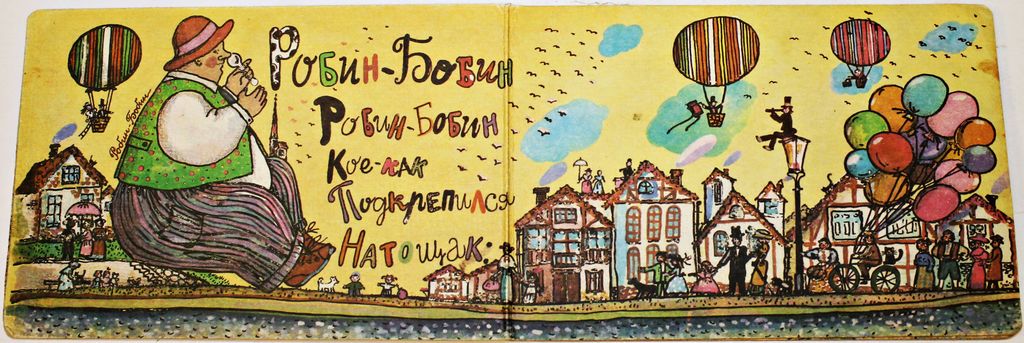 Робин-Бобин
Робин-Бобин
Кое-как
Подкрепился
Натощак.
Робин-Бобин